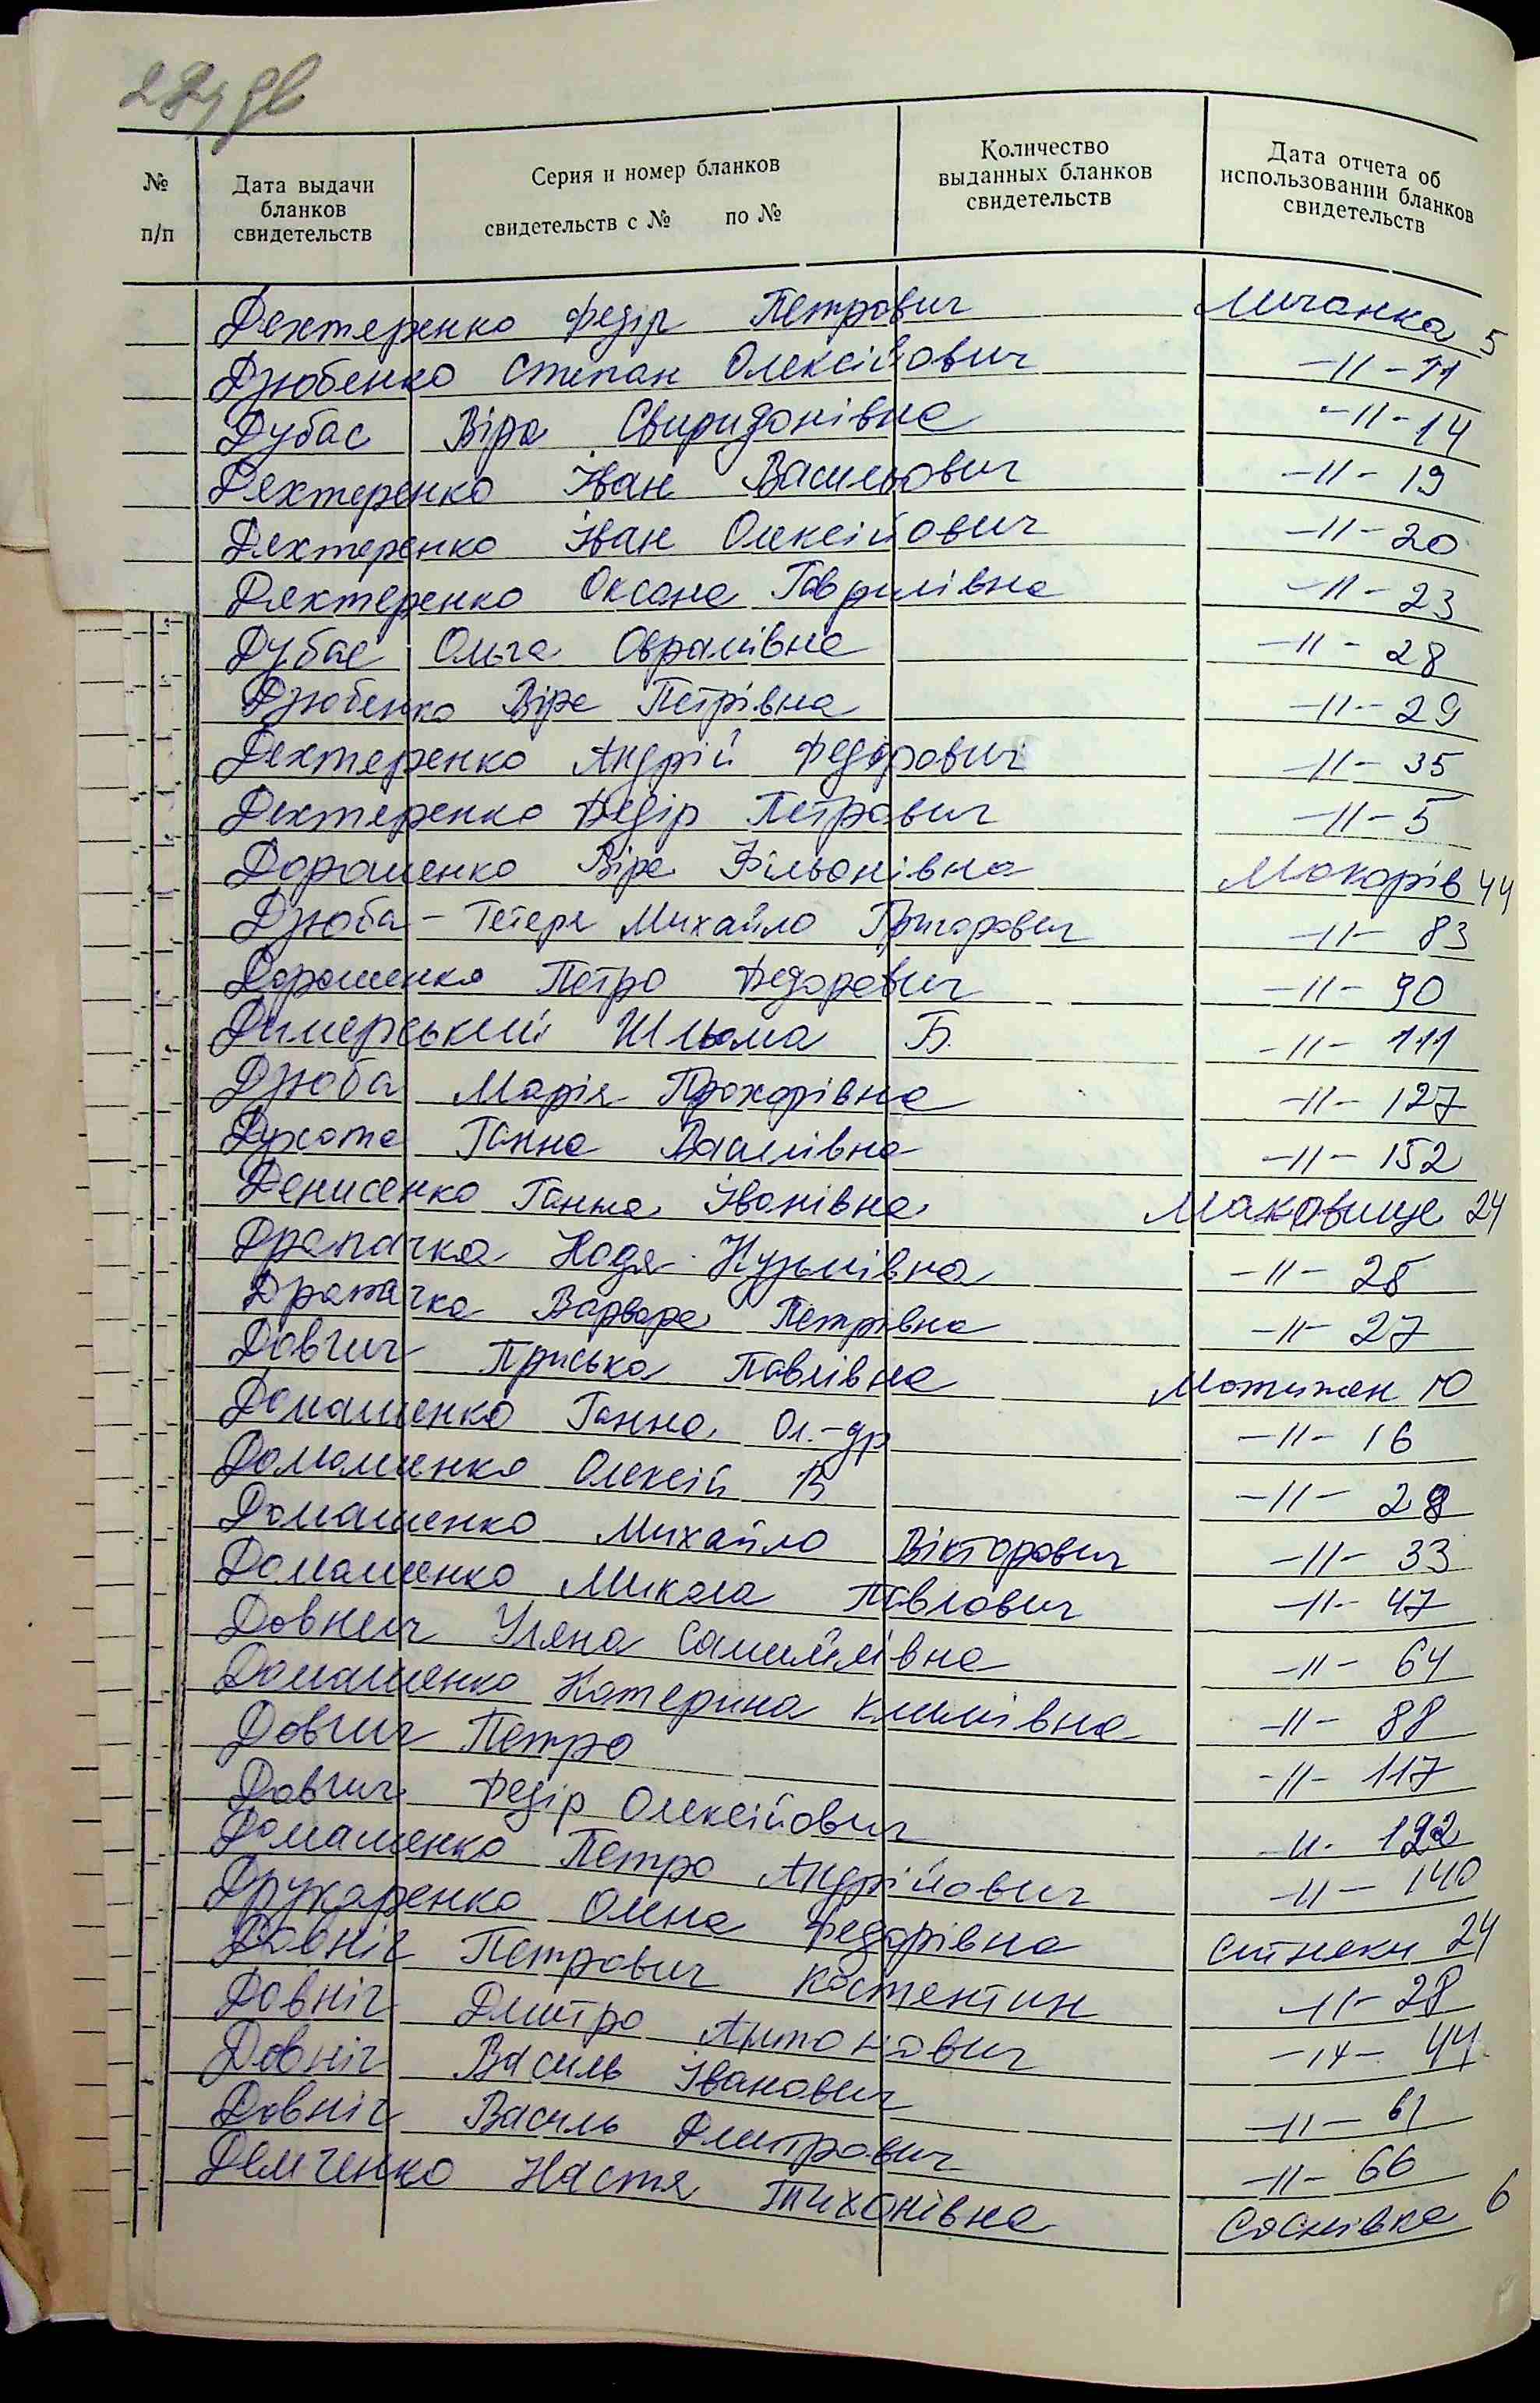 № п/п
Дата выдачи бланков свидетельств
Серия и номер бланков свидетельств с № по №
Количество выданных бланков свидетельств
Дата отчета об использовании бланков свидетельств
Дехтеренко Федір Петрович Мичанка 5
Дзюбенко Степан Олексійович -11- 11
Дубас Віра Свиридонівна -11- 14
Дехтеренко Іван Васильович -11- 19
Дехтеренко Іван Олексійович -11- 20
Дехтеренко Оксана Гаврилівна -11- 23
Дубас Ольга Овраміівна -11- 28
Дзюбенко Віра Петрівна -11- 29
Дехтеренко Андрій Федорович -11- 35
Дехтеренко Федір Петрович -11- 5
Дорошенко Віра Фільонівна Макарів 44
Дзюба-Тетеря Михайло Григорович -11- 83
Дорошенко Петро Федорович -11- 90
Димерський Шльома Б. -11- 111
Дзюба Марія Прохорівна -11- 127
Духота Ганна Василівна -11- 152
Денисенко Ганна Іванівна Маковище 24
Драпачка Надя Кузьмівна -11- 25
Драпачка Варвара Петрівна -11- 27
Довгич Приська Павлівна Мотижен 10
Домашенко Ганна Ол.-др -11- 16
Домашенко Олексій В -11- 28
Домашенко Михайло Вікторович -11- 33
Домашенко Микола Павлович -11- 47
Довгич Уляна Самійлівна -11- 64
Домашенко Катерина Климівна -11- 88
Довгич Петро -11- 117
Довгич Федір Олексійович -11- 122
Домашенко Петро Андрійович -11- 140
Дружаренко Олена Федорівна Ситняки 24
Довніч Петрович Костентин -11- 28
Довніч Дмитро Антонович -11- 44
Довніч Василь Іванович -11- 61
Довніч Василь Дмитрович -11- 66
Демченко Настя Тихонівна Соснівка 6